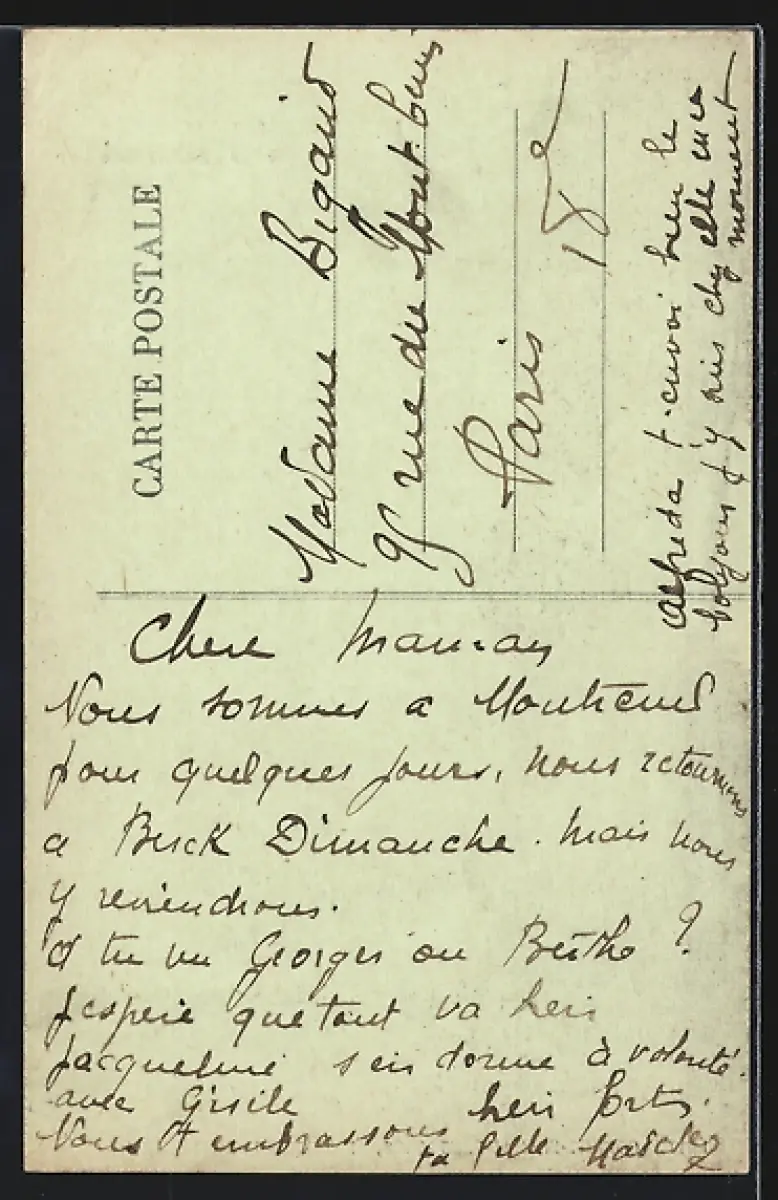 CARTE POSTALE
Madame Bigaud
95 rue du Mont Cenis
Paris 18e
Alfreda t'envoi bien le
bonjour j'y suis chez elle en ce
moment
Chere Maman
Nous sommes a Montreuil
pour quelques jours, nous retournons
a Berck Dimanche. Mais nous
y reviendrons.
a tu vu Georges ou Berthe ?
J'espere que tout va bien
Jacqueline s'en donne à volonté.
avec Gisele bien fort.
Nous t'embrassons
ta fille